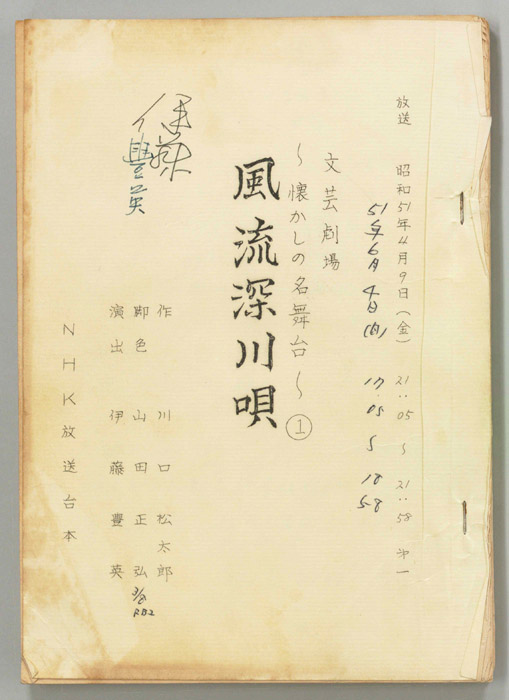 放送 昭和51年4月9日(金) 21:05 ~ 21:58 第一
51年6月4日 17.05 ~ 18
58
文芸劇場
~懐かしの名舞台~ ①
風流深川唄
伊藤
豊英
作 川口松太郎
脚色 山田正弘
演出 伊藤豊英
NHK放送台本